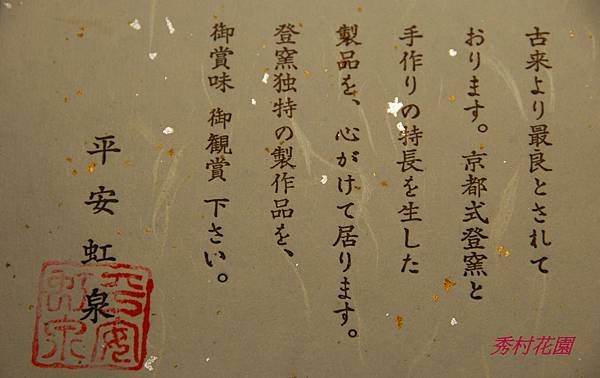 古来より最良とされて
おります。京都式登窯と
手作りの特長を生した
製品を、心がけて居ります。
登窯独特の製作品を、
御賞味 御観賞 下さい。
平安虹泉
平安虹泉
秀村花園